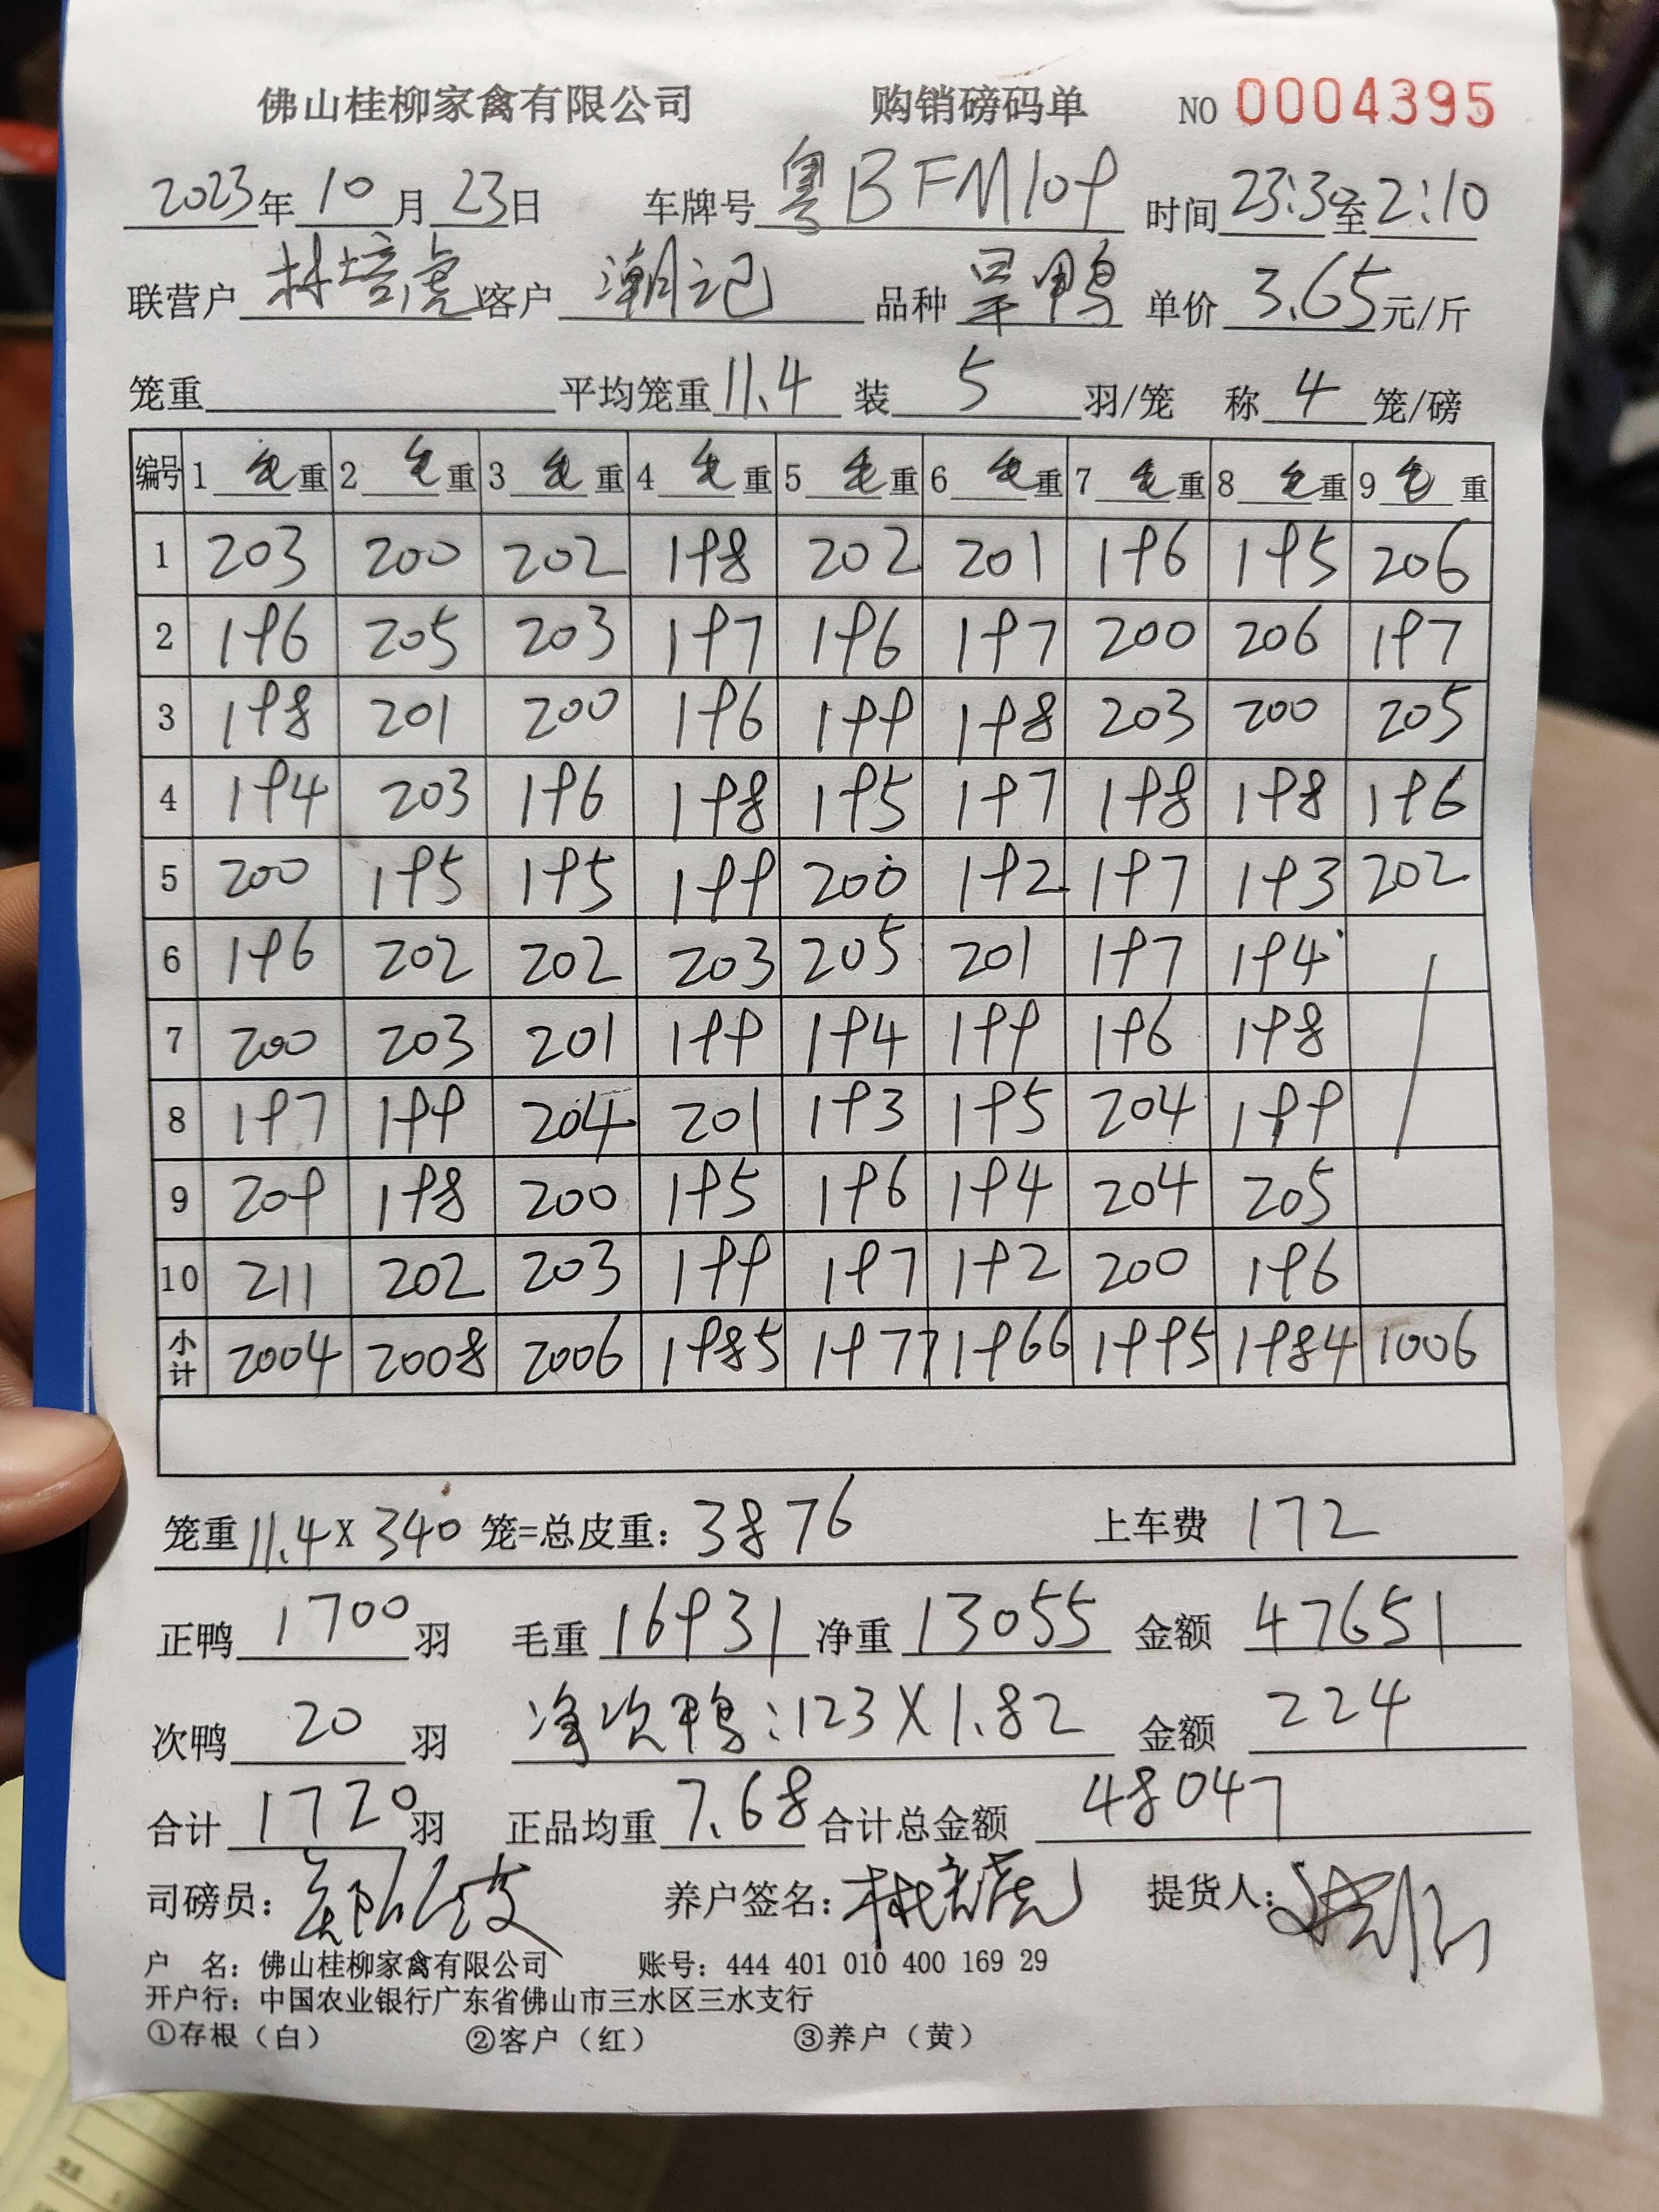 佛山桂柳家禽有限公司 购销磅码单 NO 0004395
2023年10月23日 车牌号 粤BFM109 时间23:30至2:10
联营户 林培虎 客户 潮记 品种 旱鸭 单价 3.65元/斤
笼重 平均笼重11.4 装 5 羽/笼 称 4 笼/磅
编号 1 毛重 2 毛重 3 毛重 4 毛重 5 毛重 6 毛重 7 毛重 8 毛重 9 毛重
1 203 200 202 198 202 201 196 195 206
2 196 205 203 197 196 197 200 206 197
3 198 201 200 196 199 198 203 200 205
4 194 203 196 198 195 197 198 198 196
5 200 195 195 199 200 192 197 193 202
6 196 202 202 203 205 201 197 194
7 200 203 201 199 194 199 196 198
8 197 199 204 201 193 195 204 199
9 209 198 200 195 196 194 204 205
10 211 202 203 199 197 192 200 196
小计 2004 2008 2006 1985 1977 1966 1995 1984 1006
笼重11.4X340笼=总皮重：3876 上车费 172
正鸭 1700 羽 毛重 16931 净重 13055 金额 47651
次鸭 20 羽 净次鸭：123X1.82 金额 224
合计 1720羽 正品均重 7.68 合计总金额 48047
司磅员： 养户签名： 提货人：
户 名：佛山桂柳家禽有限公司 账号：444 401 010 400 169 29
开户行：中国农业银行广东省佛山市三水区三水支行
①存根（白） ②客户（红） ③养户（黄）